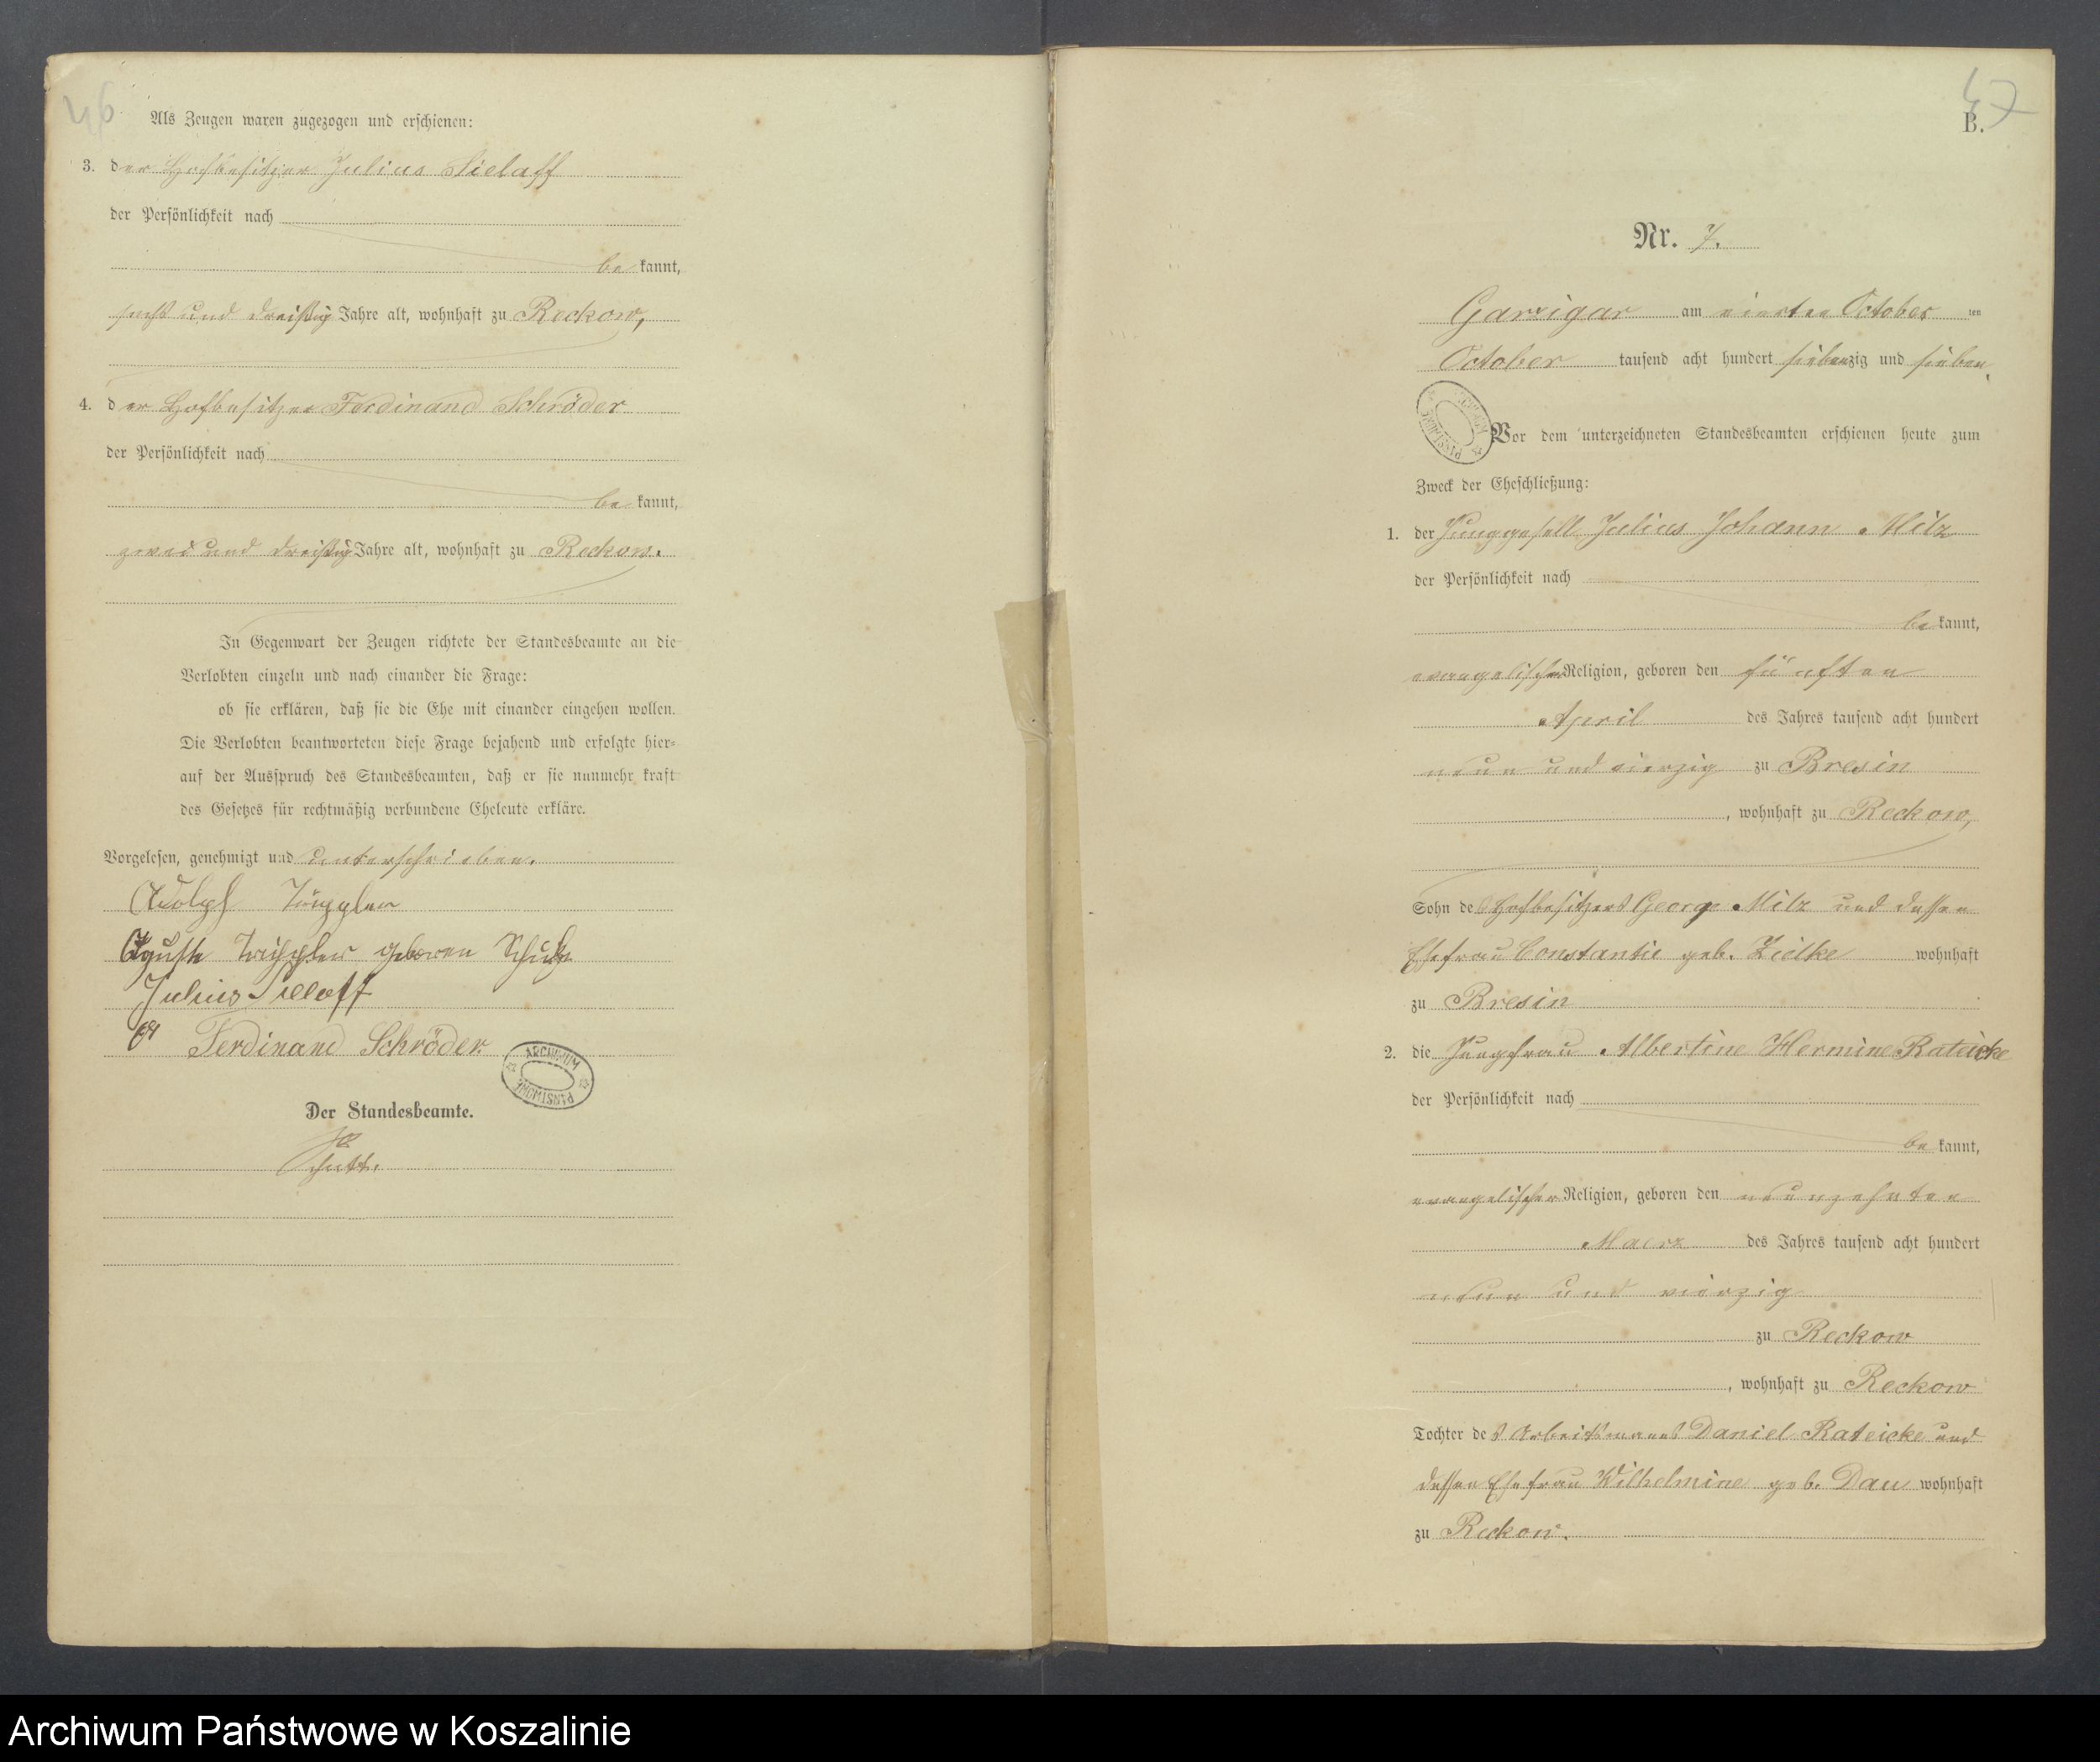 46
Als Zeugen waren zugezogen und erschienen:
3. der Hofbesitzer Julius Sielaff
der Persönlichkeit nach
be kannt,
sechs und dreißig Jahre alt, wohnhaft zu Reckow,
4. der Hofbesitzer Ferdinand Schröder
der Persönlichkeit nach
be kannt,
zwei und dreißig Jahre alt, wohnhaft zu Reckow.
In Gegenwart der Zeugen richtete der Standesbeamte an die
Verlobten einzeln und nach einander die Frage:
ob sie erklären, daß sie die Ehe mit einander eingehen wollen.
Die Verlobten beantworteten diese Frage bejahend und erfolgte hier-
auf der Ausspruch des Standesbeamten, daß er sie nunmehr kraft
des Gesetzes für rechtmäßig verbundene Eheleute erkläre.
Vorgelesen, genehmigt und unterschrieben.
Adolph
geboren Schulz
Julius Sielaff
Ferdinand Schröder
ARCHIWUM PAŃSTWOWE
Der Standesbeamte.
47
B.
Nr. 7.
Garzigar am vierten October ten
October tausend acht hundert siebenzig und sieben.
ARCHIWUM PAŃSTWOWE
Vor dem unterzeichneten Standesbeamten erschienen heute zum
Zweck der Eheschließung:
1. der Junggesell Julius Johann Milz
der Persönlichkeit nach
be kannt,
evangelischer Religion, geboren den fünften
April des Jahres tausend acht hundert
neun und vierzig zu Bresin
, wohnhaft zu Reckow,
Sohn des Hofbesitzers George Milz und dessen
Ehefrau Constantie geb. Zielke wohnhaft
zu Bresin
2. die Jungfrau Albertine Hermine Rateicke
der Persönlichkeit nach
be kannt,
evangelischer Religion, geboren den neunzehnten
Maerz des Jahres tausend acht hundert
neun und vierzig
zu Reckow
, wohnhaft zu Reckow
Tochter des Arbeitsmanns Daniel Rateicke und
dessen Ehefrau Wilhelmine geb. Dau wohnhaft
zu Reckow.
Archiwum Państwowe w Koszalinie